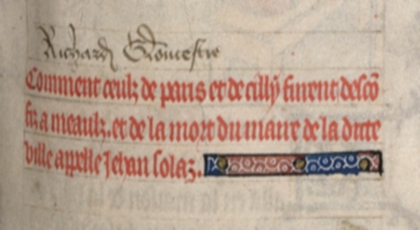 Richard Gloucestre
Comment ceulz de paris et de cilly furent descō
fiz a meaulz. et de la mort du maire de la dicte
ville appelle Jehan solaz.